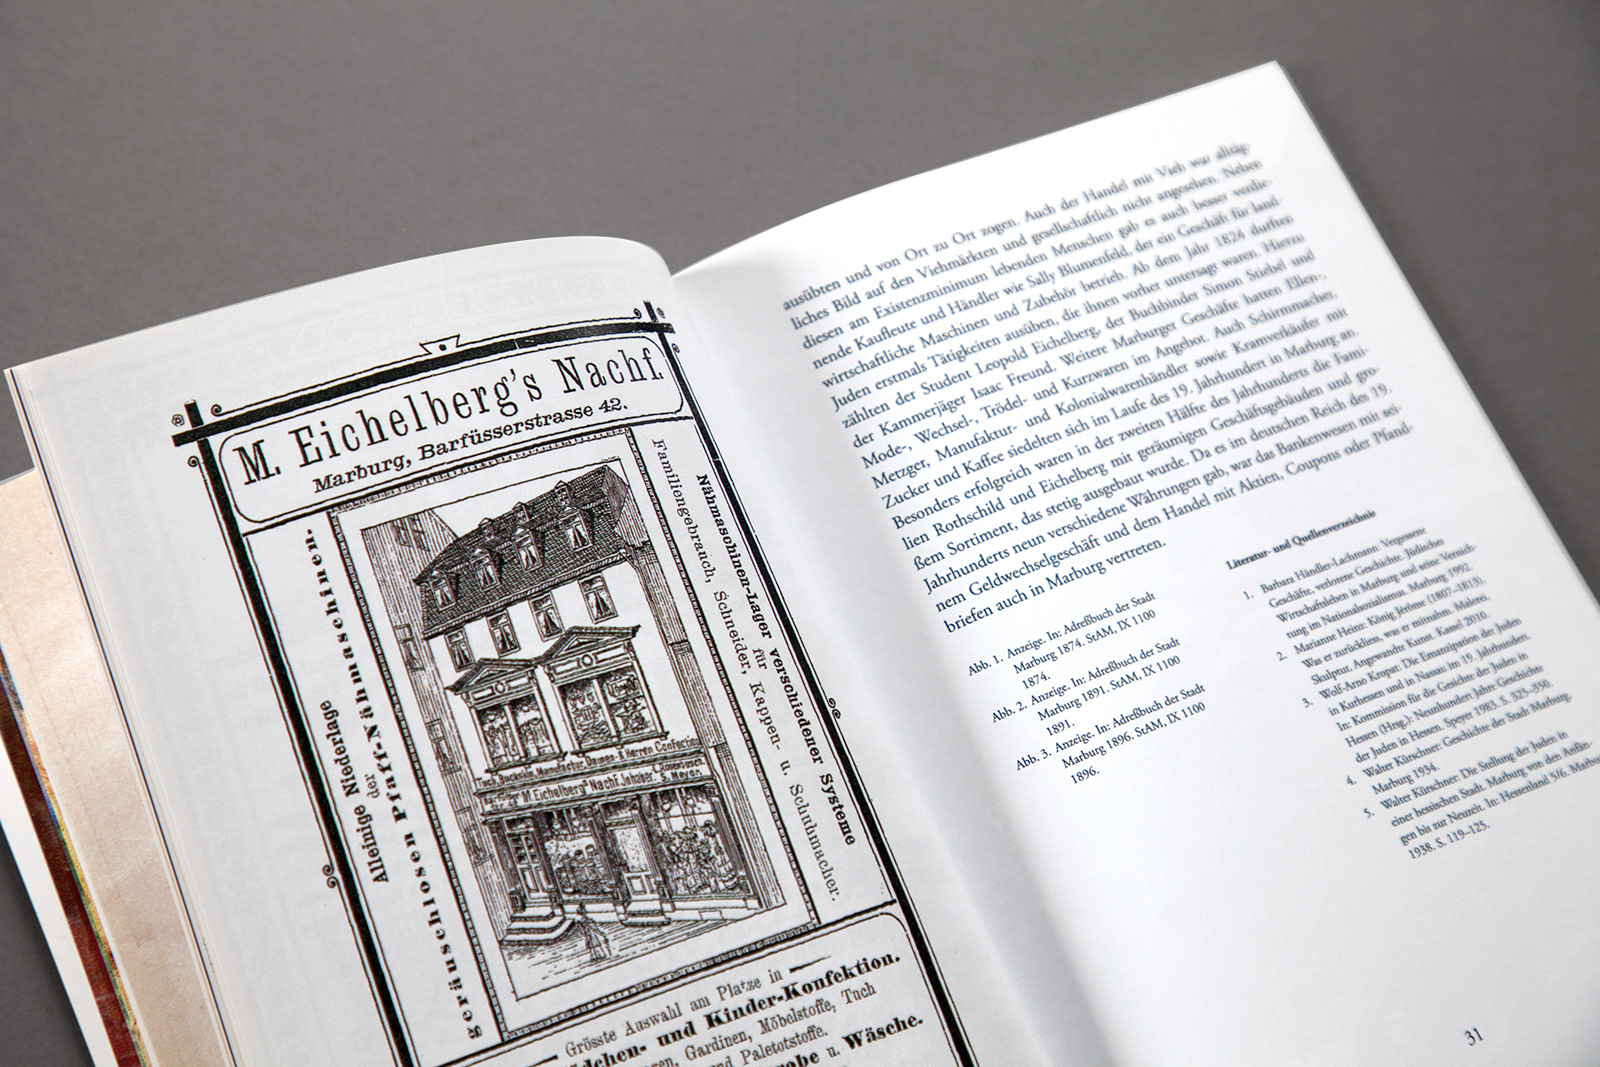 M. Eichelberg's Nachf.
Marburg, Barfüsserstrasse 42.
Alleinige Niederlage
der
geräuschlosen Pfaff-Nähmaschinen.
Nähmaschinen-Lager verschiedener Systeme
für
Familiengebrauch, Schneider, Kappen- u. Schuhmacher.
Tuch, Buckskin, Manufactur, Damen- & Herren Confection
M. Eichelberg's Nachf. Inhaber C. Rosenbusch
S. Meyer.
Grösste Auswahl am Platze in
dchen- und Kinder-Konfektion.
ren, Gardinen, Möbelstoffe, Tuch
nd Paletotstoffe.
obe u. Wäsche.
ausübten und von Ort zu Ort zogen. Auch der Handel mit Vieh war alltäg-
liches Bild auf den Viehmärkten und gesellschaftlich nicht angesehen. Neben
diesen am Existenzminimum lebenden Menschen gab es auch besser verdie-
nende Kaufleute und Händler wie Sally Blumenfeld, der ein Geschäft für land-
wirtschaftliche Maschinen und Zubehör betrieb. Ab dem Jahr 1824 durften
Juden erstmals Tätigkeiten ausüben, die ihnen vorher untersagt waren. Hierzu
zählten der Student Leopold Eichelberg, der Buchbinder Simon Stiebel und
der Kammerjäger Isaac Freund. Weitere Marburger Geschäfte hatten Ellen-,
Mode-, Wechsel-, Trödel- und Kurzwaren im Angebot. Auch Schirmmacher,
Metzger, Manufaktur- und Kolonialwarenhändler sowie Kramverkäufer mit
Zucker und Kaffee siedelten sich im Laufe des 19. Jahrhundert in Marburg an.
Besonders erfolgreich waren in der zweiten Hälfte des Jahrhunderts die Fami-
lien Rothschild und Eichelberg mit geräumigen Geschäftsgebäuden und gro-
ßem Sortiment, das stetig ausgebaut wurde. Da es im deutschen Reich des 19.
Jahrhunderts neun verschiedene Währungen gab, war das Bankenwesen mit sei-
nem Geldwechselgeschäft und dem Handel mit Aktien, Coupons oder Pfand-
briefen auch in Marburg vertreten.
Abb. 1. Anzeige. In: Adreßbuch der Stadt
Marburg 1874. StAM, IX 1100
1874.
Abb. 2. Anzeige. In: Adreßbuch der Stadt
Marburg 1891. StAM, IX 1100
1891.
Abb. 3. Anzeige. In: Adreßbuch der Stadt
Marburg 1896. StAM, IX 1100
1896.
Literatur- und Quellenverzeichnis
1. Barbara Händler-Lachmann: Vergessene
Geschäfte, verlorene Geschichte. Jüdisches
Wirtschaftsleben in Marburg und seine Vernich-
tung im Nationalsozialismus. Marburg 1992.
2. Marianne Heinz: König Jérôme (1807–1813).
Was er zurückliess, was er mitnahm. Malerei,
Skulptur, Angewandte Kunst. Kassel 2010.
3. Wolf-Arno Kropat: Die Emanzipation der Juden
in Kurhessen und in Nassau im 19. Jahrhundert.
In: Kommission für die Gesichte der Juden in
Hessen (Hrsg.): Neunhundert Jahre Geschichte
der Juden in Hessen. Speyer 1983. S. 325–350.
4. Walter Kürschner: Geschichte der Stadt Marburg.
Marburg 1934.
5. Walter Kürschner: Die Stellung der Juden in
einer hessischen Stadt. Marburg von den Anfän-
gen bis zur Neuzeit. In: Hessenland 5/6. Marburg
1938. S. 119–125.
31